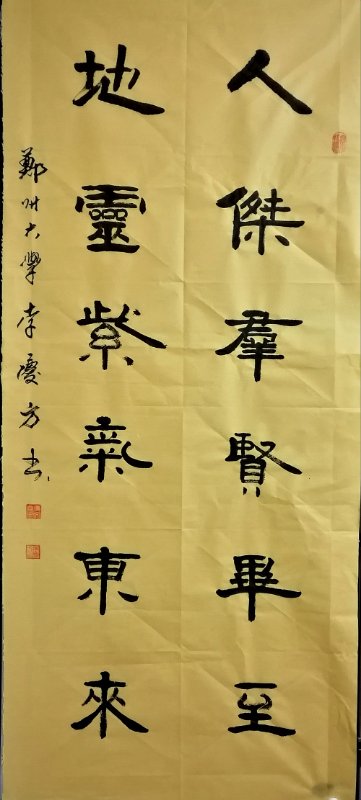 人傑羣賢畢至
地靈紫氣東來
鄭州大學李慶方書